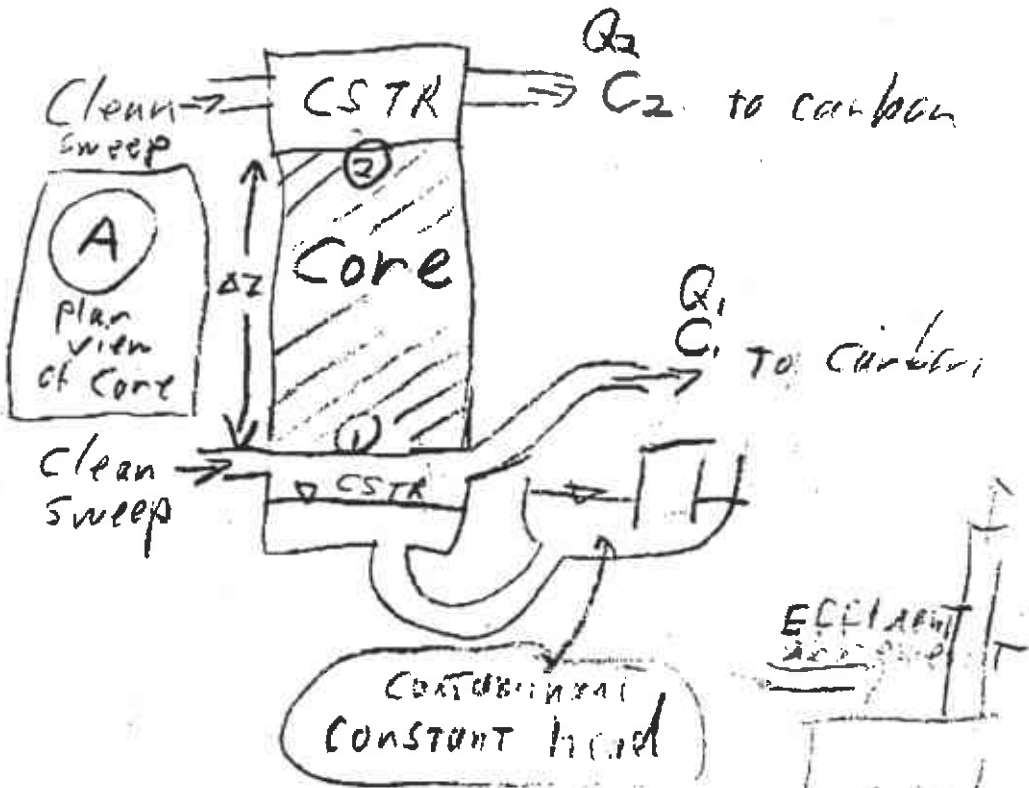 Q2
Clean
sweep
CSTR
C2 to carbon
2
A
plan
view
of Core
ΔZ
Core
Q1
C1 To carbon
1
Clean
sweep
CSTR
Constant head